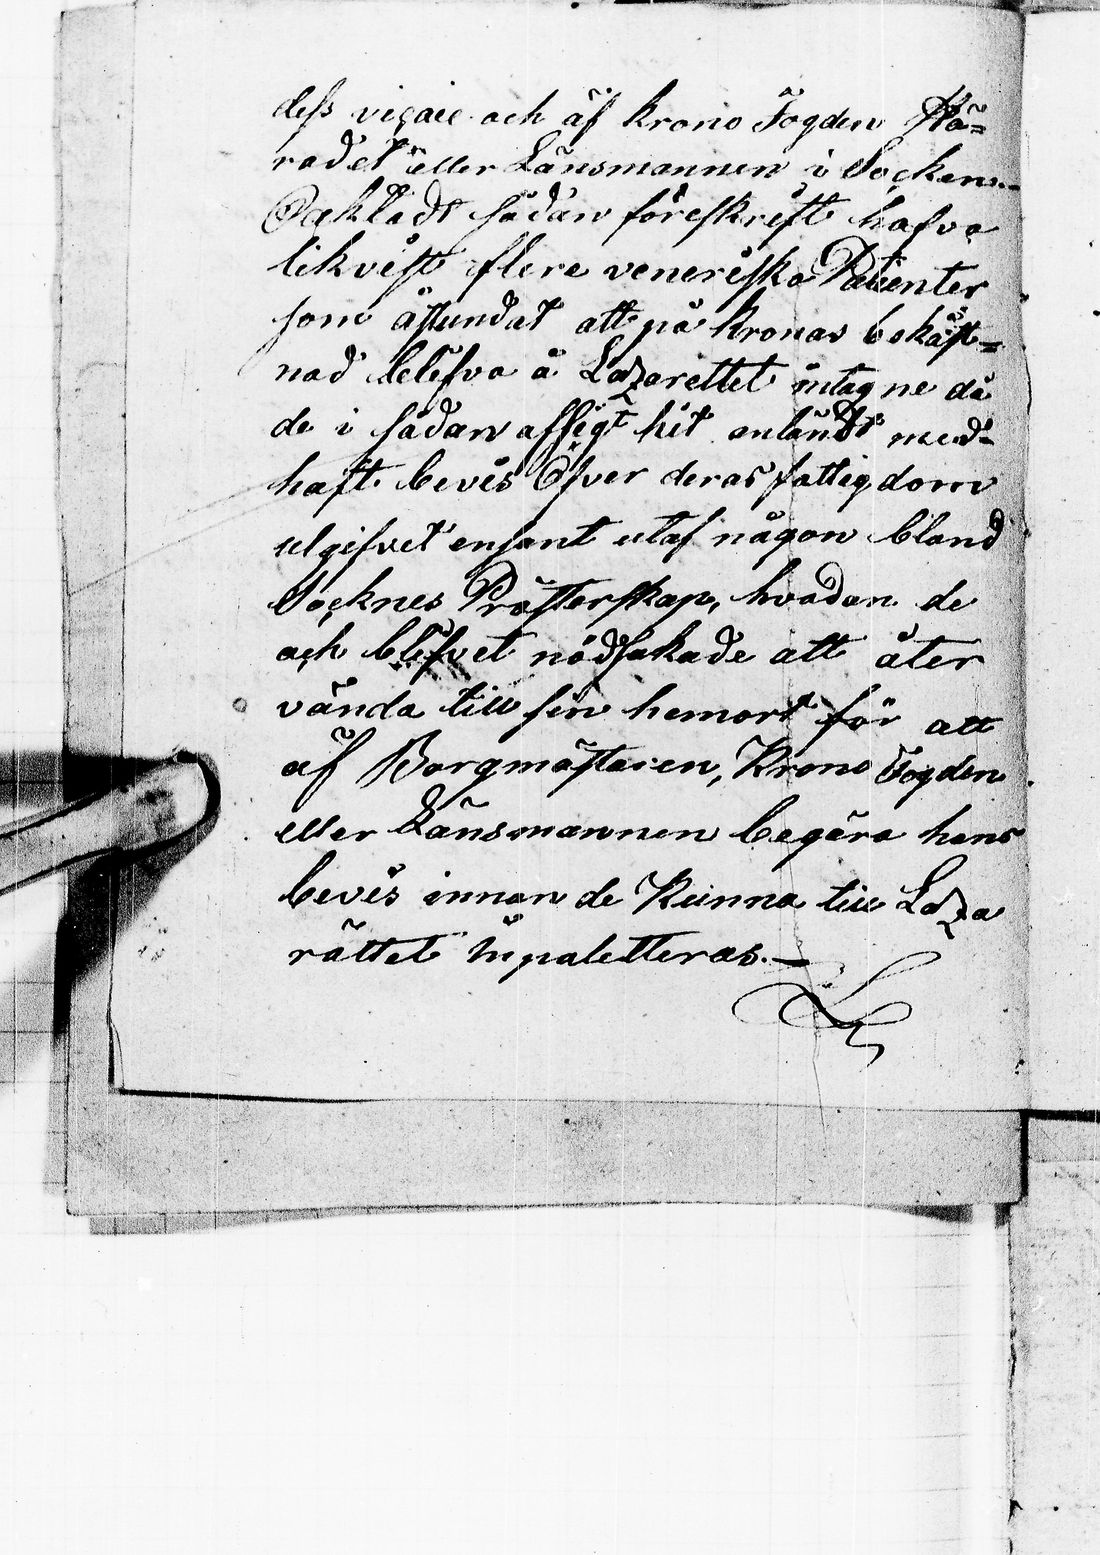 dess vicarie och af Krono Fogden Hä=
radet eller Länsmannen i Socken.
Oaktadt sådan föreskrift hafva
likvist flere veneriska Patienter
som åstundat att på Kronas bekåst=
nad blifva å Lazarettet intagne då
de i sådan afsigt hit anländt med=
haft bevis öfver deras fattigdom
utgifvet ensamt utaf någon bland
Socknes Prästerskap, hvadan de
och blifvet nödsakade att åter
vända till sin hemort för att
af Borgmästaren, Krono Fogden
eller Länsmannen begära hans
bevis innan de Kunna till Laza
rättet inpaletteras.—